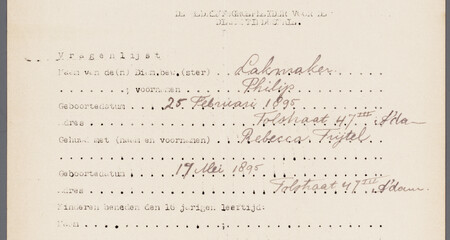 Vragenlijst
Naam van de(n) Dien.bew.(ster) Lakmaker
: voornamen Philip
Geboortedatum 25 Februari 1895
adres Tolstraat 47 III A'dam
Gehuwd met (naam en voornamen) Rebecca Trijtel
Geboortedatum 17 Mei 1895
adres Tolstraat 47 III A'dam
Kinderen beneden den 16 jarigen leeftijd:
Naam :